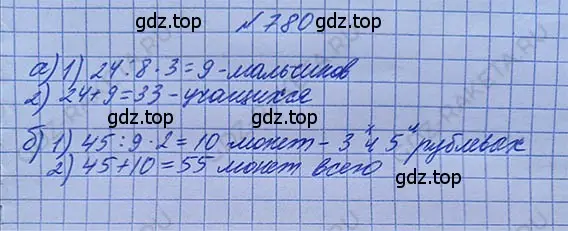 №780
gdz.top gdz.top
а) 1) 24:8·3=9-мальчиков
2) 24+9=33-учащихся
gdz.top gdz.top
б) 1) 45:9·2=10 монет-3ˣ и 5ᵘ рублевах
2) 45+10=55 монет всего
gdz.top gdz.top